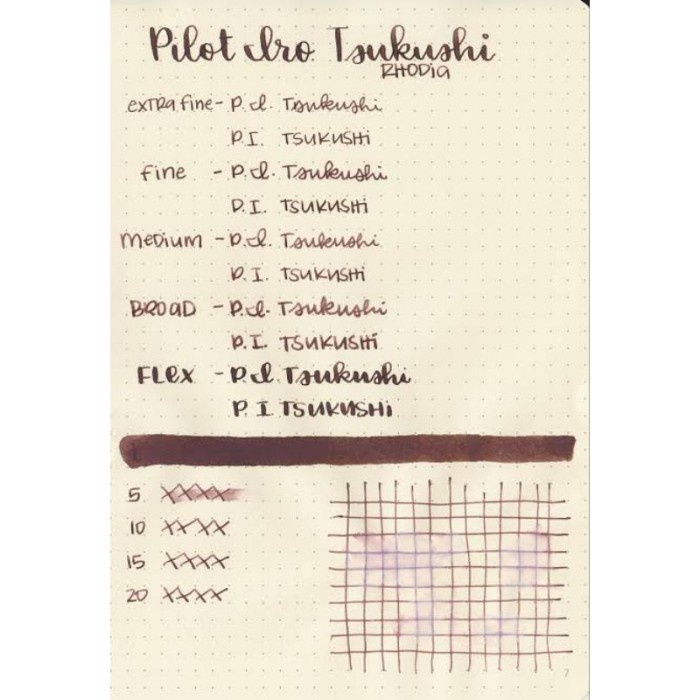 Pilot Iro Tsukushi
RHODIA
extra fine - P.I. Tsukushi
P.I. TSUKUSHi
fine - P.I. Tsukushi
P.I. TSUKUSHi
Medium - P.I. Tsukushi
P.I. TSUKUSHi
BROAD - P.I. Tsukushi
P.I. TSUKUSHi
FLex - P.I. Tsukushi
P.I. TSUKUSHi
5 XXXX
10 XXXX
15 XXXX
20 XXXX